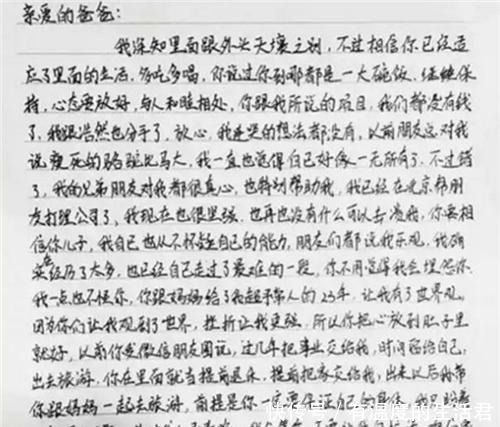 亲爱的爸爸:
我深知里面跟外头天壤之别,不过相信你已经适
应了里面的生活,多吃多喝,你说过你到哪都是一大碗饭,继续保
持,心态要放好,与人和睦相处,你跟我所说的项目,我们都没有钱
了,我跟浩然也分手了,放心,我连哭的想法都没有,以前朋友总对我
说瘦死的骆驼比马大,我一直也觉得自己好像一无所有了,不过错
了,我的兄弟朋友对我都很真心,也特别帮助我,我已经在北京帮朋
友打理公司了,我现在也很坚强,也再也没有什么可以击溃我,你要相
信你儿子,我自己也从不怀疑自己的能力,朋友们都说我乐观,我确
实经历了太多,也已经自己走过了最难的一段,你不用觉得我会埋怨你
我一点也不怪你,你跟妈妈给了我超乎常人的23年,让我有了世界观。
因为你们让我观到了世界,挫折让我更强,所以你把心放到肚子里
就好,以前你发微信朋友圈说,过几年把事业交给我,时间留给自己,
出去旅游,你在里面就当提前退休,提前把家交给我,出来以后我带
你跟妈妈一起去旅游,前提是你一定要保证自己的身体,
快传号/有温度的生活君